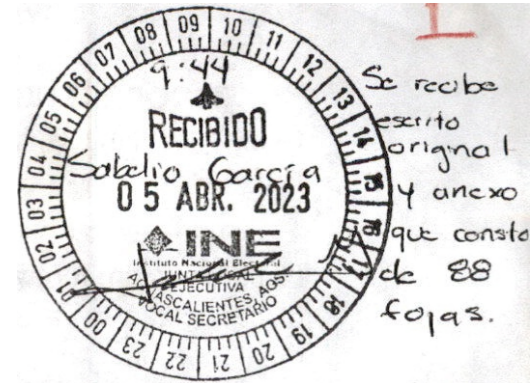 1
07 08 09 10 11 12 13 14 15 16 17 18 19 20 21 22 23 00 01 02 03 04 05 06
9:44
RECIBIDO
Sabelio García
05 ABR. 2023
INE
Instituto Nacional Electoral
JUNTA
EJECUTIVA
AGUASCALIENTES, AGS.
VOCAL SECRETARIO
Se recibe
escrito
original
y anexo
que consta
de 88
fojas.